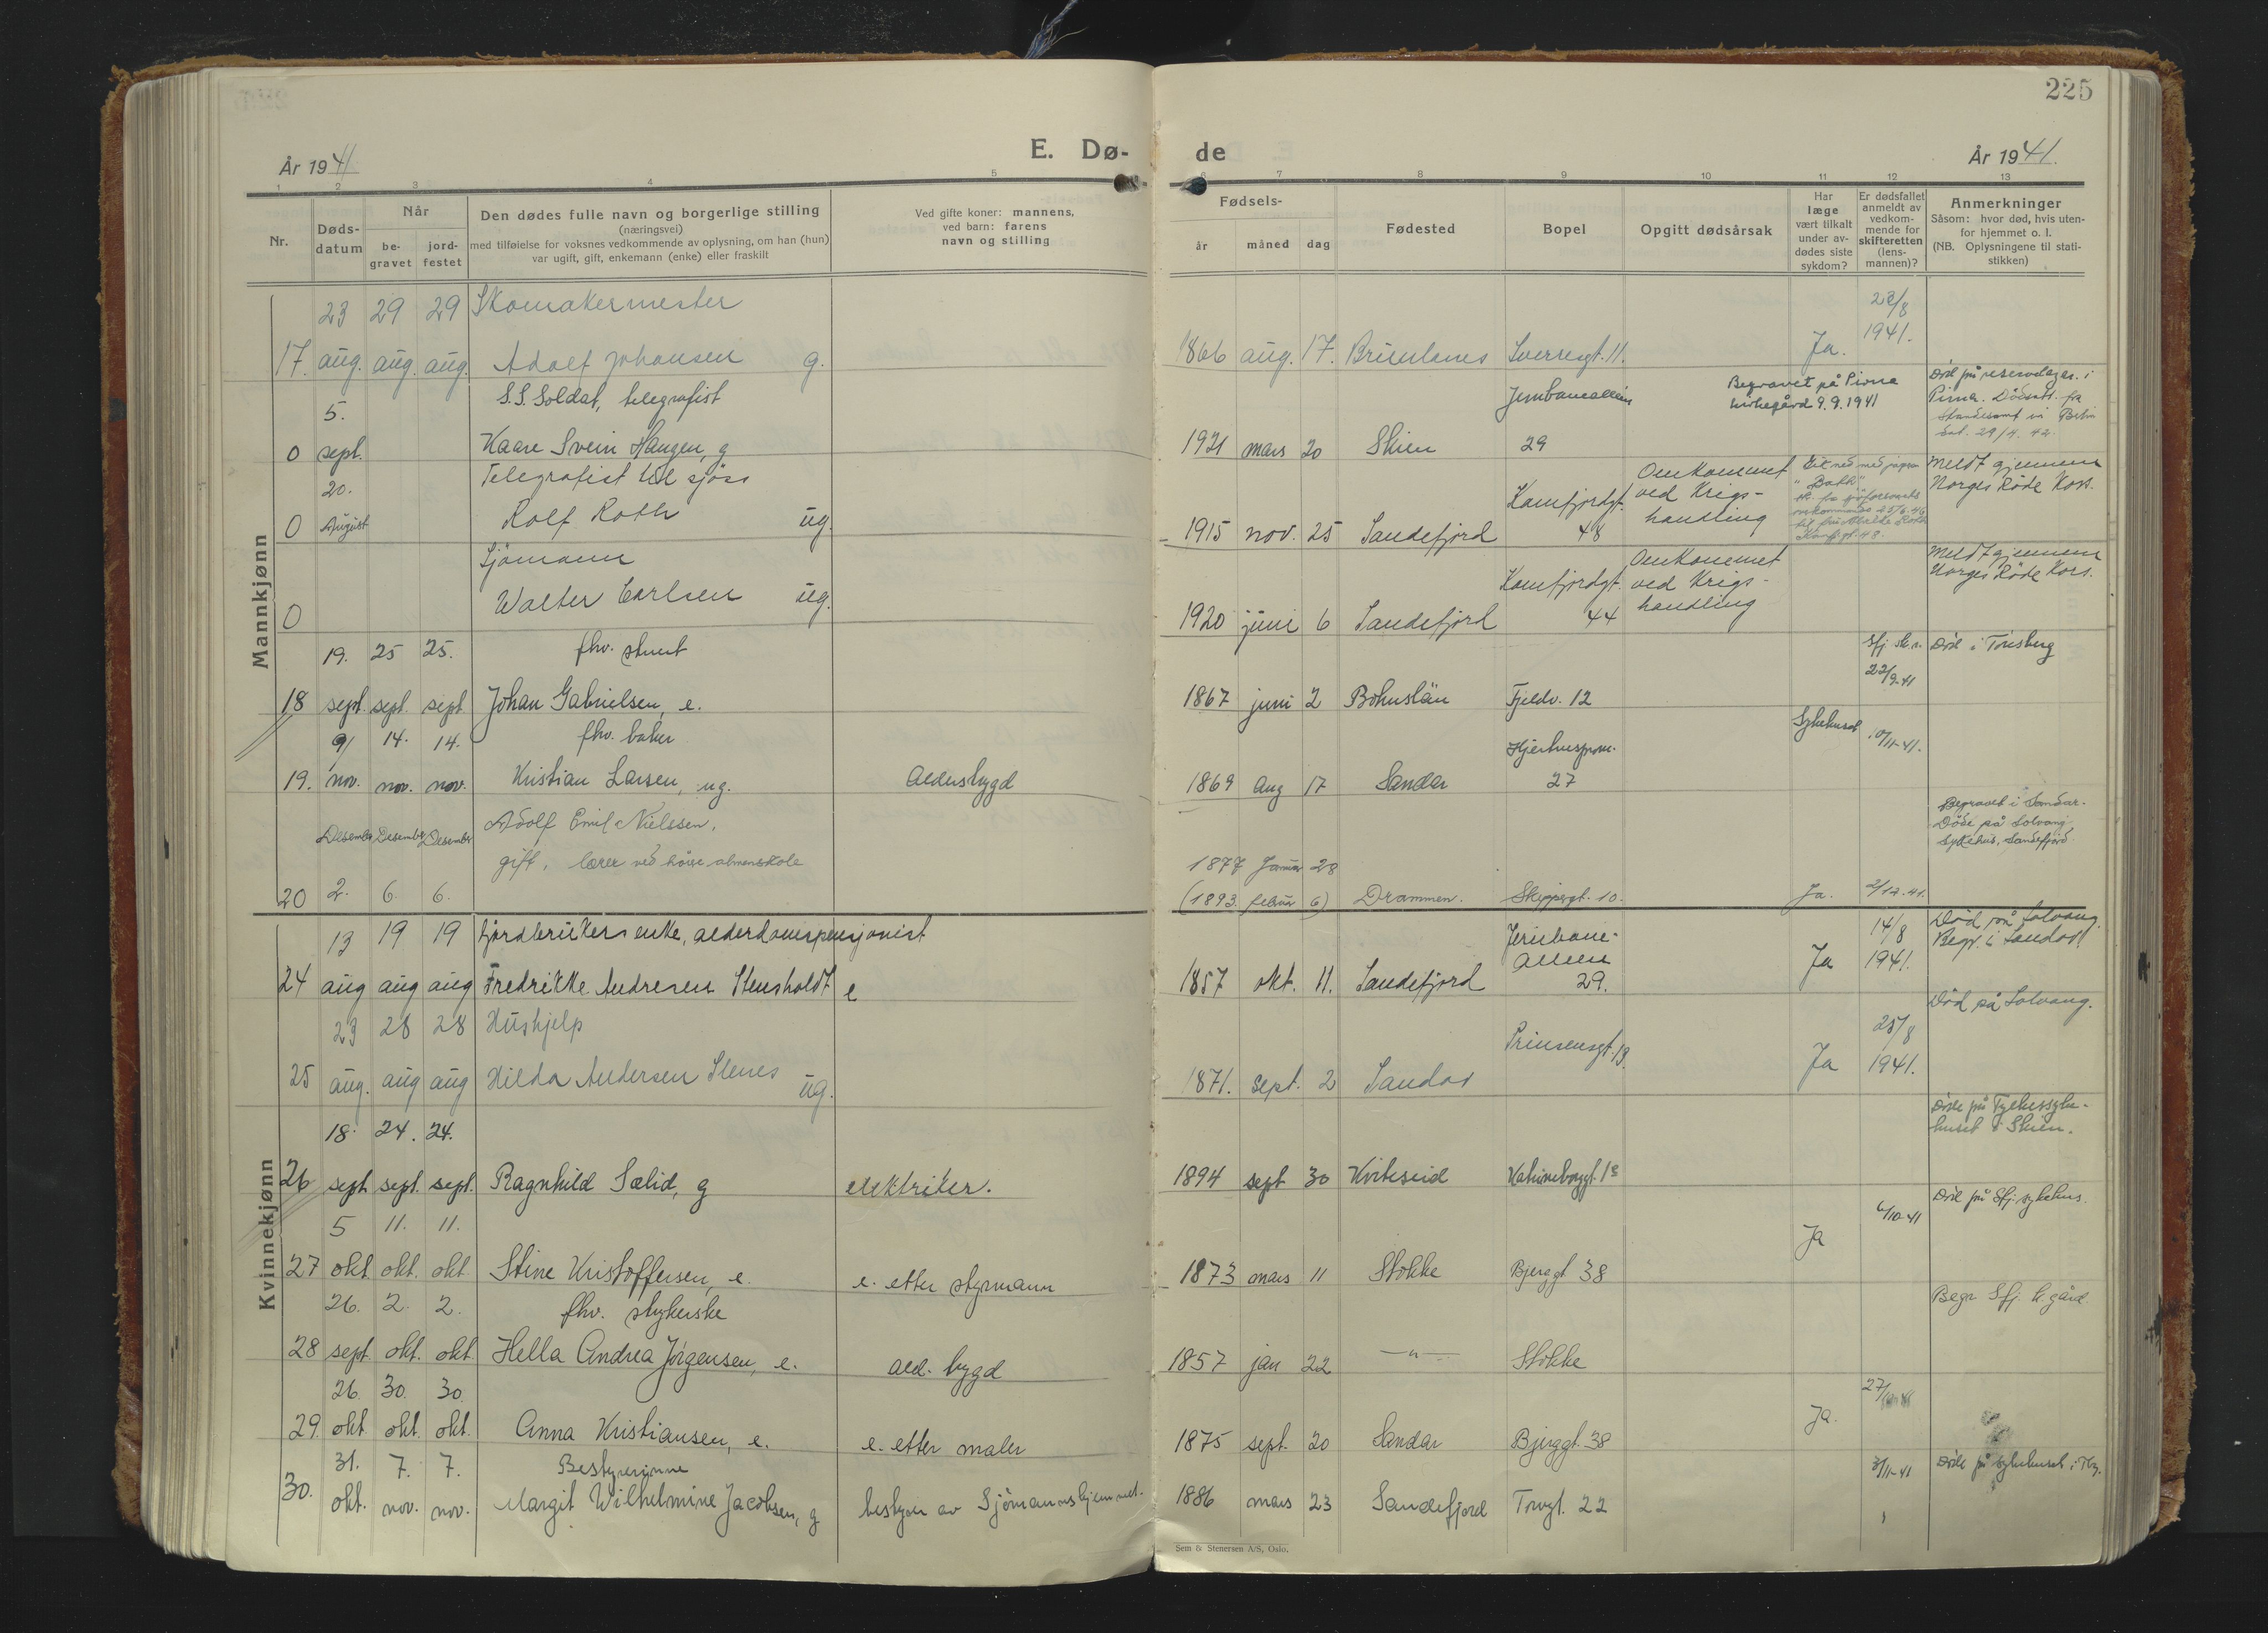 225
E. Dø-
de
År 1941
År 1941.
1 2 3 4 5 6 7 8 9 10 11 12 13
Nr.
Døds-
datum
Når
be-
gravet
jord-
festet
Den dødes fulle navn og borgerlige stilling
(næringsvei)
med tilføielse for voksnes vedkommende av oplysning, om han (hun)
var ugift, gift, enkemann (enke) eller fraskilt
Ved gifte koner: mannens,
ved barn: farens
navn og stilling
Fødsels-
år måned dag
Fødested
Bopel
Opgitt dødsårsak
Har
læge
vært tilkalt
under av-
dødes siste
sykdom?
Er dødsfallet
anmeldt av
vedkom-
mende for
skifteretten
(lens-
mannen)?
Anmerkninger
Såsom: hvor død, hvis uten-
for hjemmet o. l.
(NB. Oplysningene til stati-
stikken)
Mannkjønn
23 29 29 Skomakermester
17. aug. aug. aug. Adolf Johansen g. 1866 aug. 17. Brunlanes Sverresgt. 11. Ja. 23/8 1941.
5. S.S. Soldat, telegrafist
0 sept. Kaare Svein Haugen, g 1921 mars 20 Skien Jernbancalléen 29
Begravet på Pirna
kirkegård 9.9.1941
Død på reservelager. i
Pirna. Dødsatt. fra
Standesamt in Berlin
dat. 29/4. 42.
20. Telegrafist til sjøss
0 August Rolf Roth ug. 1915 nov. 25 Sandefjord Kamfjordgt. 48
Omkommet
ved Krigs-
handling
"Bakk"
Meldt gjennem
Norges Røde Kors.
Sjømann
0 Walter Carlsen ug. 1920 juni 6 Sandefjord Kamfjordgt. 44
Omkommet
ved Krigs-
handling
Meldt gjennem
Norges Røde Kors.
19. 25 25. fhv. stuert
18 sept. sept. sept. Johan Gabrielsen, e. 1867 juni 2 Bohuslän Fjeldv. 12 Sfj. sk.r. 22/9-41 Død i Tønsberg
9/ 14. 14. fhv. baker
19. nov. nov. nov. Kristian Larsen, ug. Alderstrygd 1869 Aug 17 Sandar 27 Sykehuset 10/11-41.
Desember Desember Desember Adolf Emil Nielssen,
gift, lærer ved høiere almenskole
20 2. 6. 6. 1877 Januar 28
(1893. februar 6) Drammen. Skippergt. 10. Ja. 2/12-41.
Begravet i Sandar.
Døde på Solvang
Sykehus, Sandefjord.
Kvinnekjønn
13 19 19 Gjordbrukers enke, alderdomspensjonist
24 aug aug aug Fredrikke Andresen Stensholdt e 1857 okt. 11. Sandefjord Jernbane-
alleen
29. Ja 14/8 1941. Død på Solvang.
Begr. i Sandar.
23 28 28 Hushjelp
25 aug. aug aug Hilda Andersen Stenes ug. 1871. sept. 2 Sandar Prinsensgt. 13 Ja 25/8 1941. Død på Solvang.
18. 24. 24.
26 sept. sept. sept. Ragnhild Sælid, g elektriker. 1894 sept 30 Kviteseid Døde på Fylkessyke-
huset i Skien.
5 11. 11.
27 okt okt. okt. Stine Kristoffersen, e. e. etter styrmann 1873 mars 11 Stokke Bjerggt. 38 Ja 6/10-41 Død på Sfj. sykehus.
26. 2. 2. fhv. strykerske
28 sept. okt. okt. Hella Andrea Jørgensen, e. ald. trygd 1857 jan 22 —"— Stokke Begr. Sfj. k.gård.
26. 30. 30.
29. okt okt. okt. Anna Kristiansen, e. e. etter maler 1875 sept. 20 Sandar Bjerggt. 38 Ja. 27/10-41
31. 7. 7. Bestyrerinne
30. okt. nov. nov. Margit Wilhelmine Jacobsen, g bestyrer av Sjømannshjemmet. 1886 mars 23 Sandefjord Torvgt. 22 3/11-41 Døde på sykehuset i Tbg.
Sem & Stenersen A/S, Oslo.